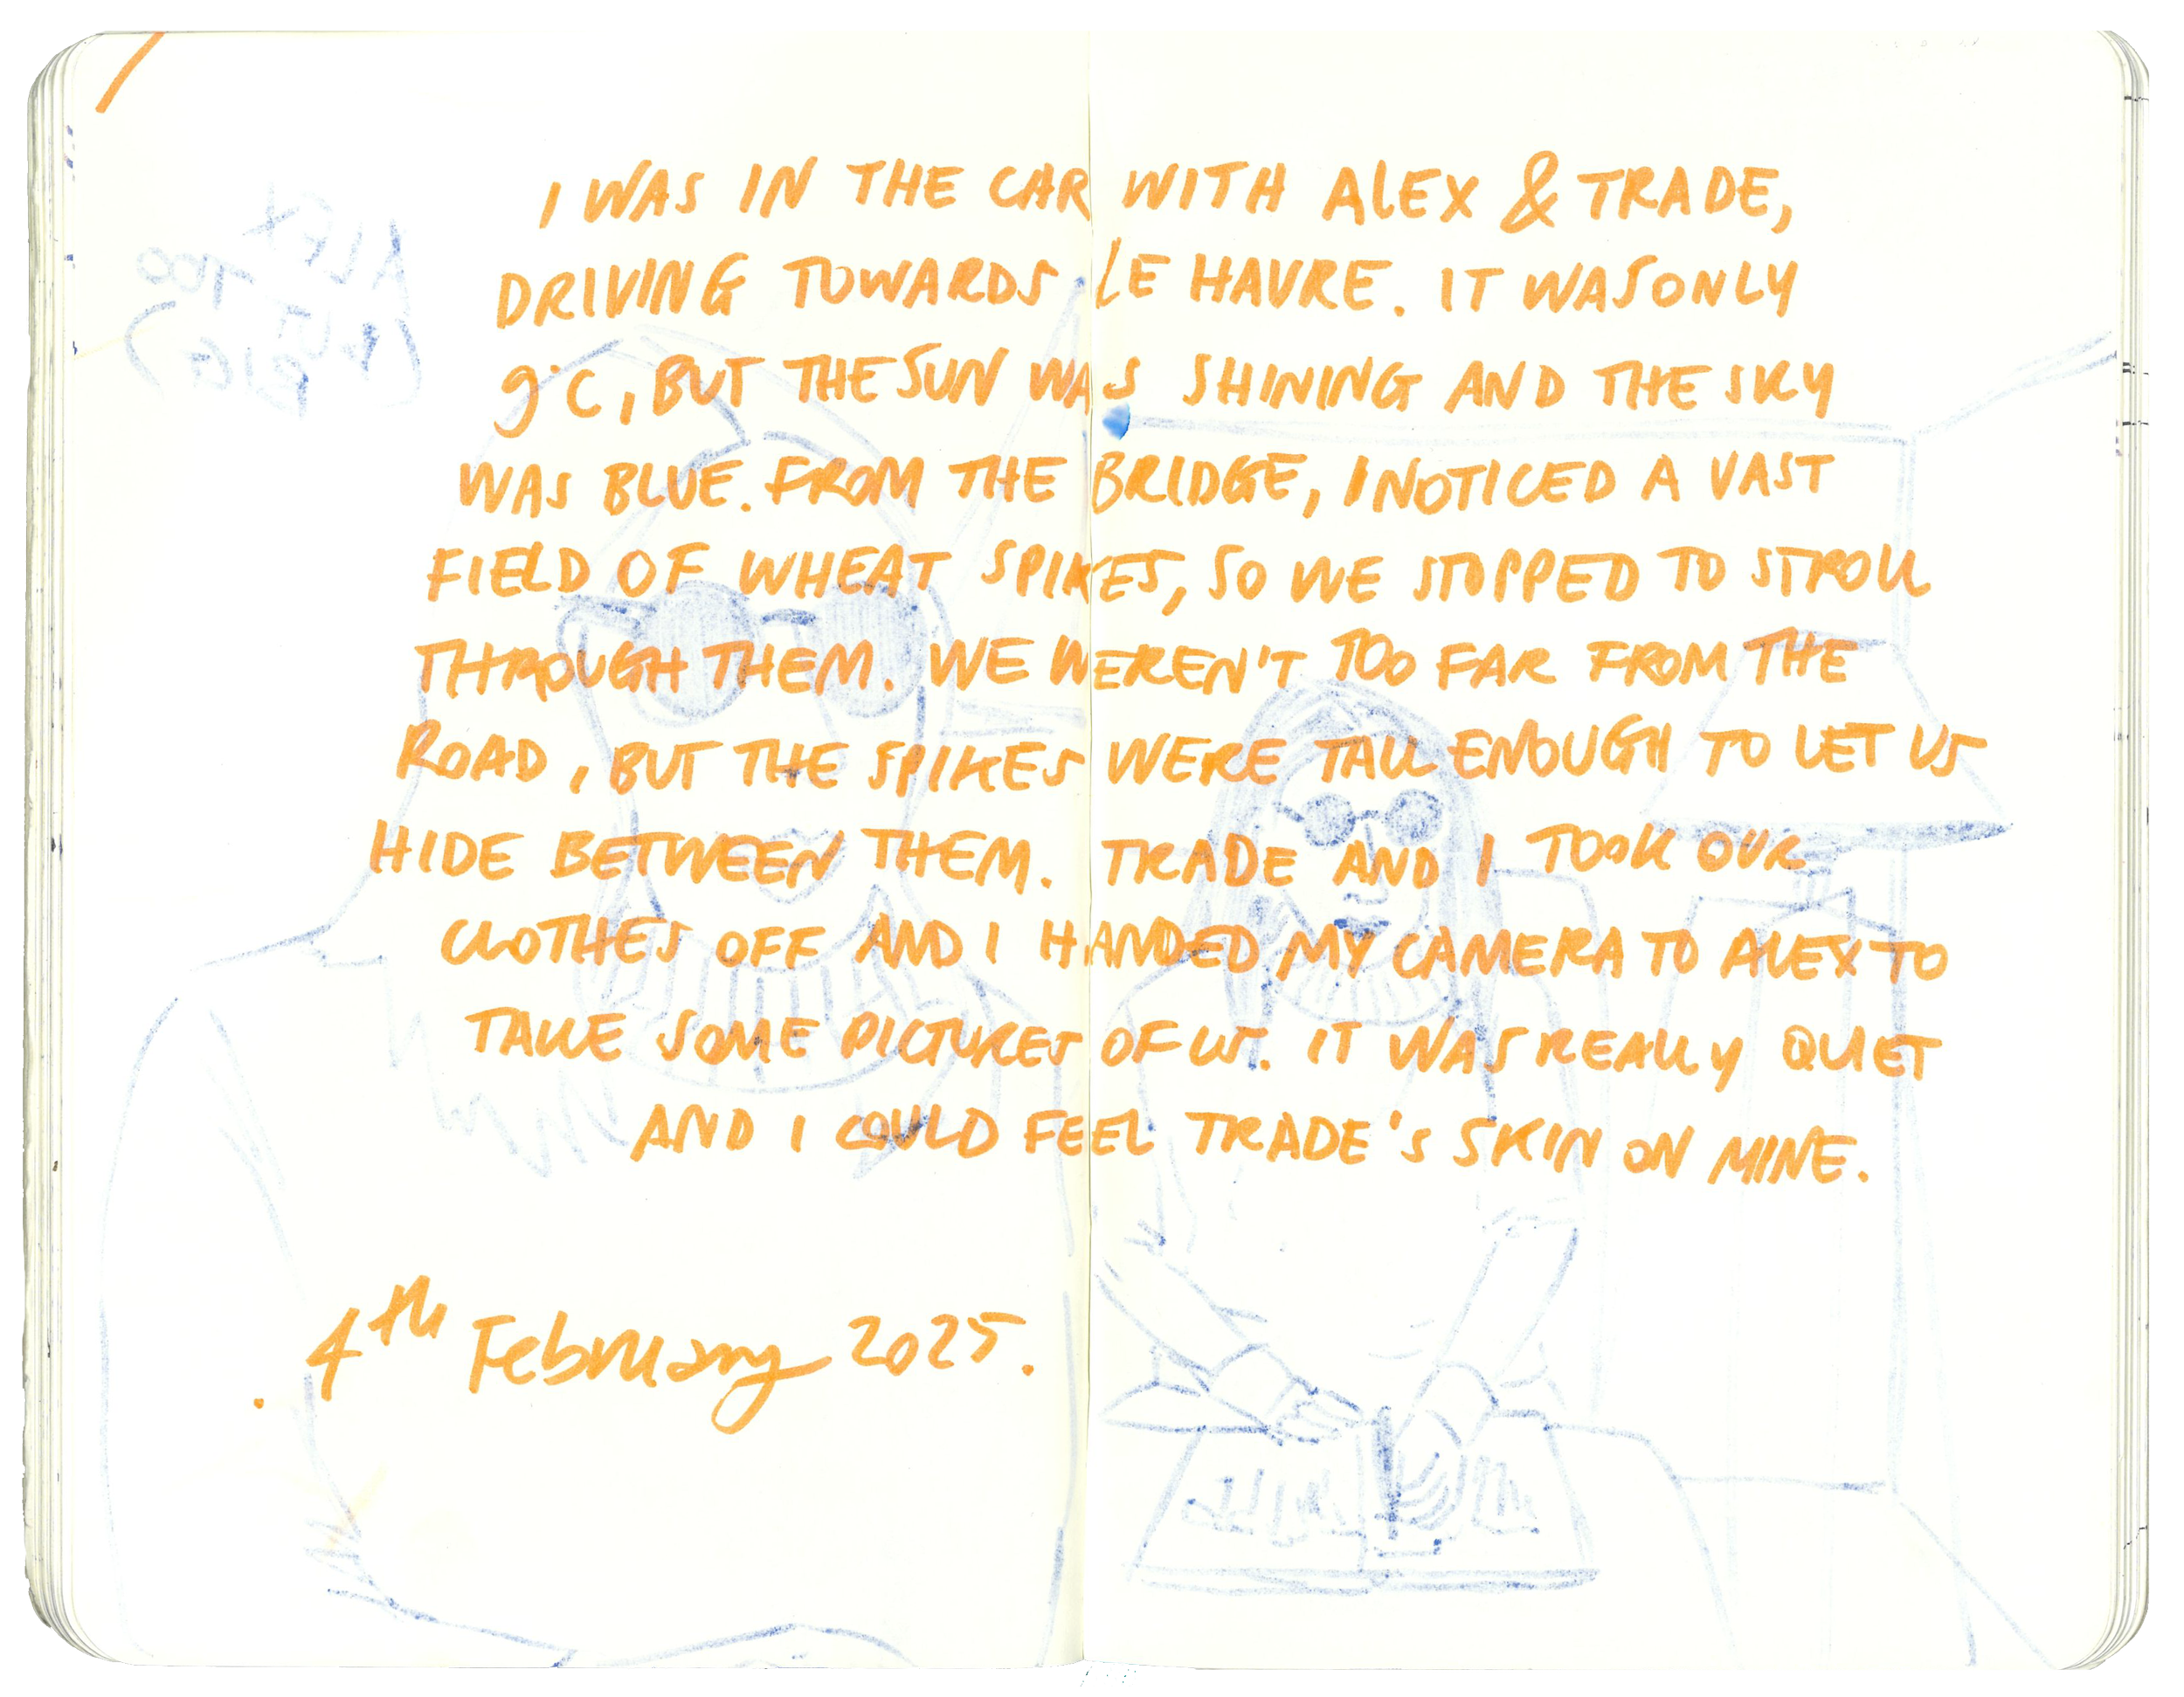 I WAS IN THE CAR WITH ALEX & TRADE,
DRIVING TOWARDS LE HAVRE. IT WAS ONLY
9°C, BUT THE SUN WAS SHINING AND THE SKY
WAS BLUE. FROM THE BRIDGE, I NOTICED A VAST
FIELD OF WHEAT SPIKES, SO WE STOPPED TO STROLL
THROUGH THEM. WE WEREN'T TOO FAR FROM THE
ROAD, BUT THE SPIKES WERE TALL ENOUGH TO LET US
HIDE BETWEEN THEM. TRADE AND I TOOK OUR
CLOTHES OFF AND I HANDED MY CAMERA TO ALEX TO
TAKE SOME PICTURES OF US. IT WAS REALLY QUIET
AND I COULD FEEL TRADE'S SKIN ON MINE.
. 4th February 2025.
ALEX
TOO
BIG)